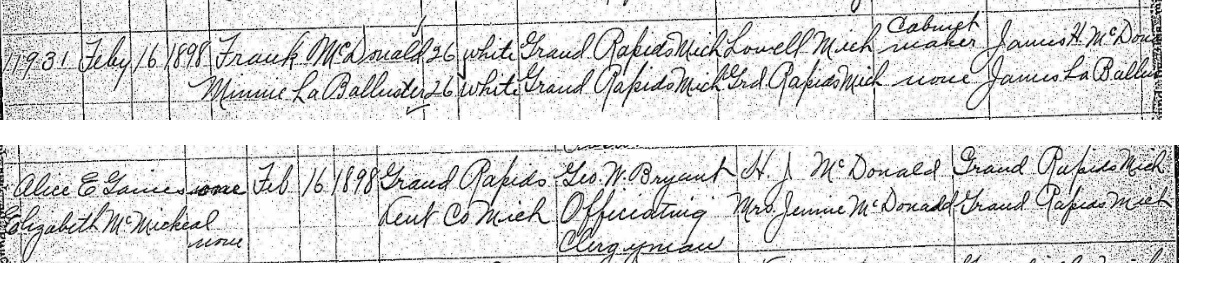 17931 Feby 16 1898 Frank McDonald 26 white Grand Rapids Mich Lowell Mich Cabinet maker James H. McDon
Minnie La Balluster 26 white Grand Rapids Mich Grd. Rapids Mich none James La Ballus
Alice E Gaines none Feb 16 1898 Grand Rapids Geo. W. Bryant H. J. McDonald Grand Rapids Mich
Elizabeth McMickeal none Kent Co Mich Officiating Mrs. Jennie McDonald Grand Rapids Mich
Clergyman